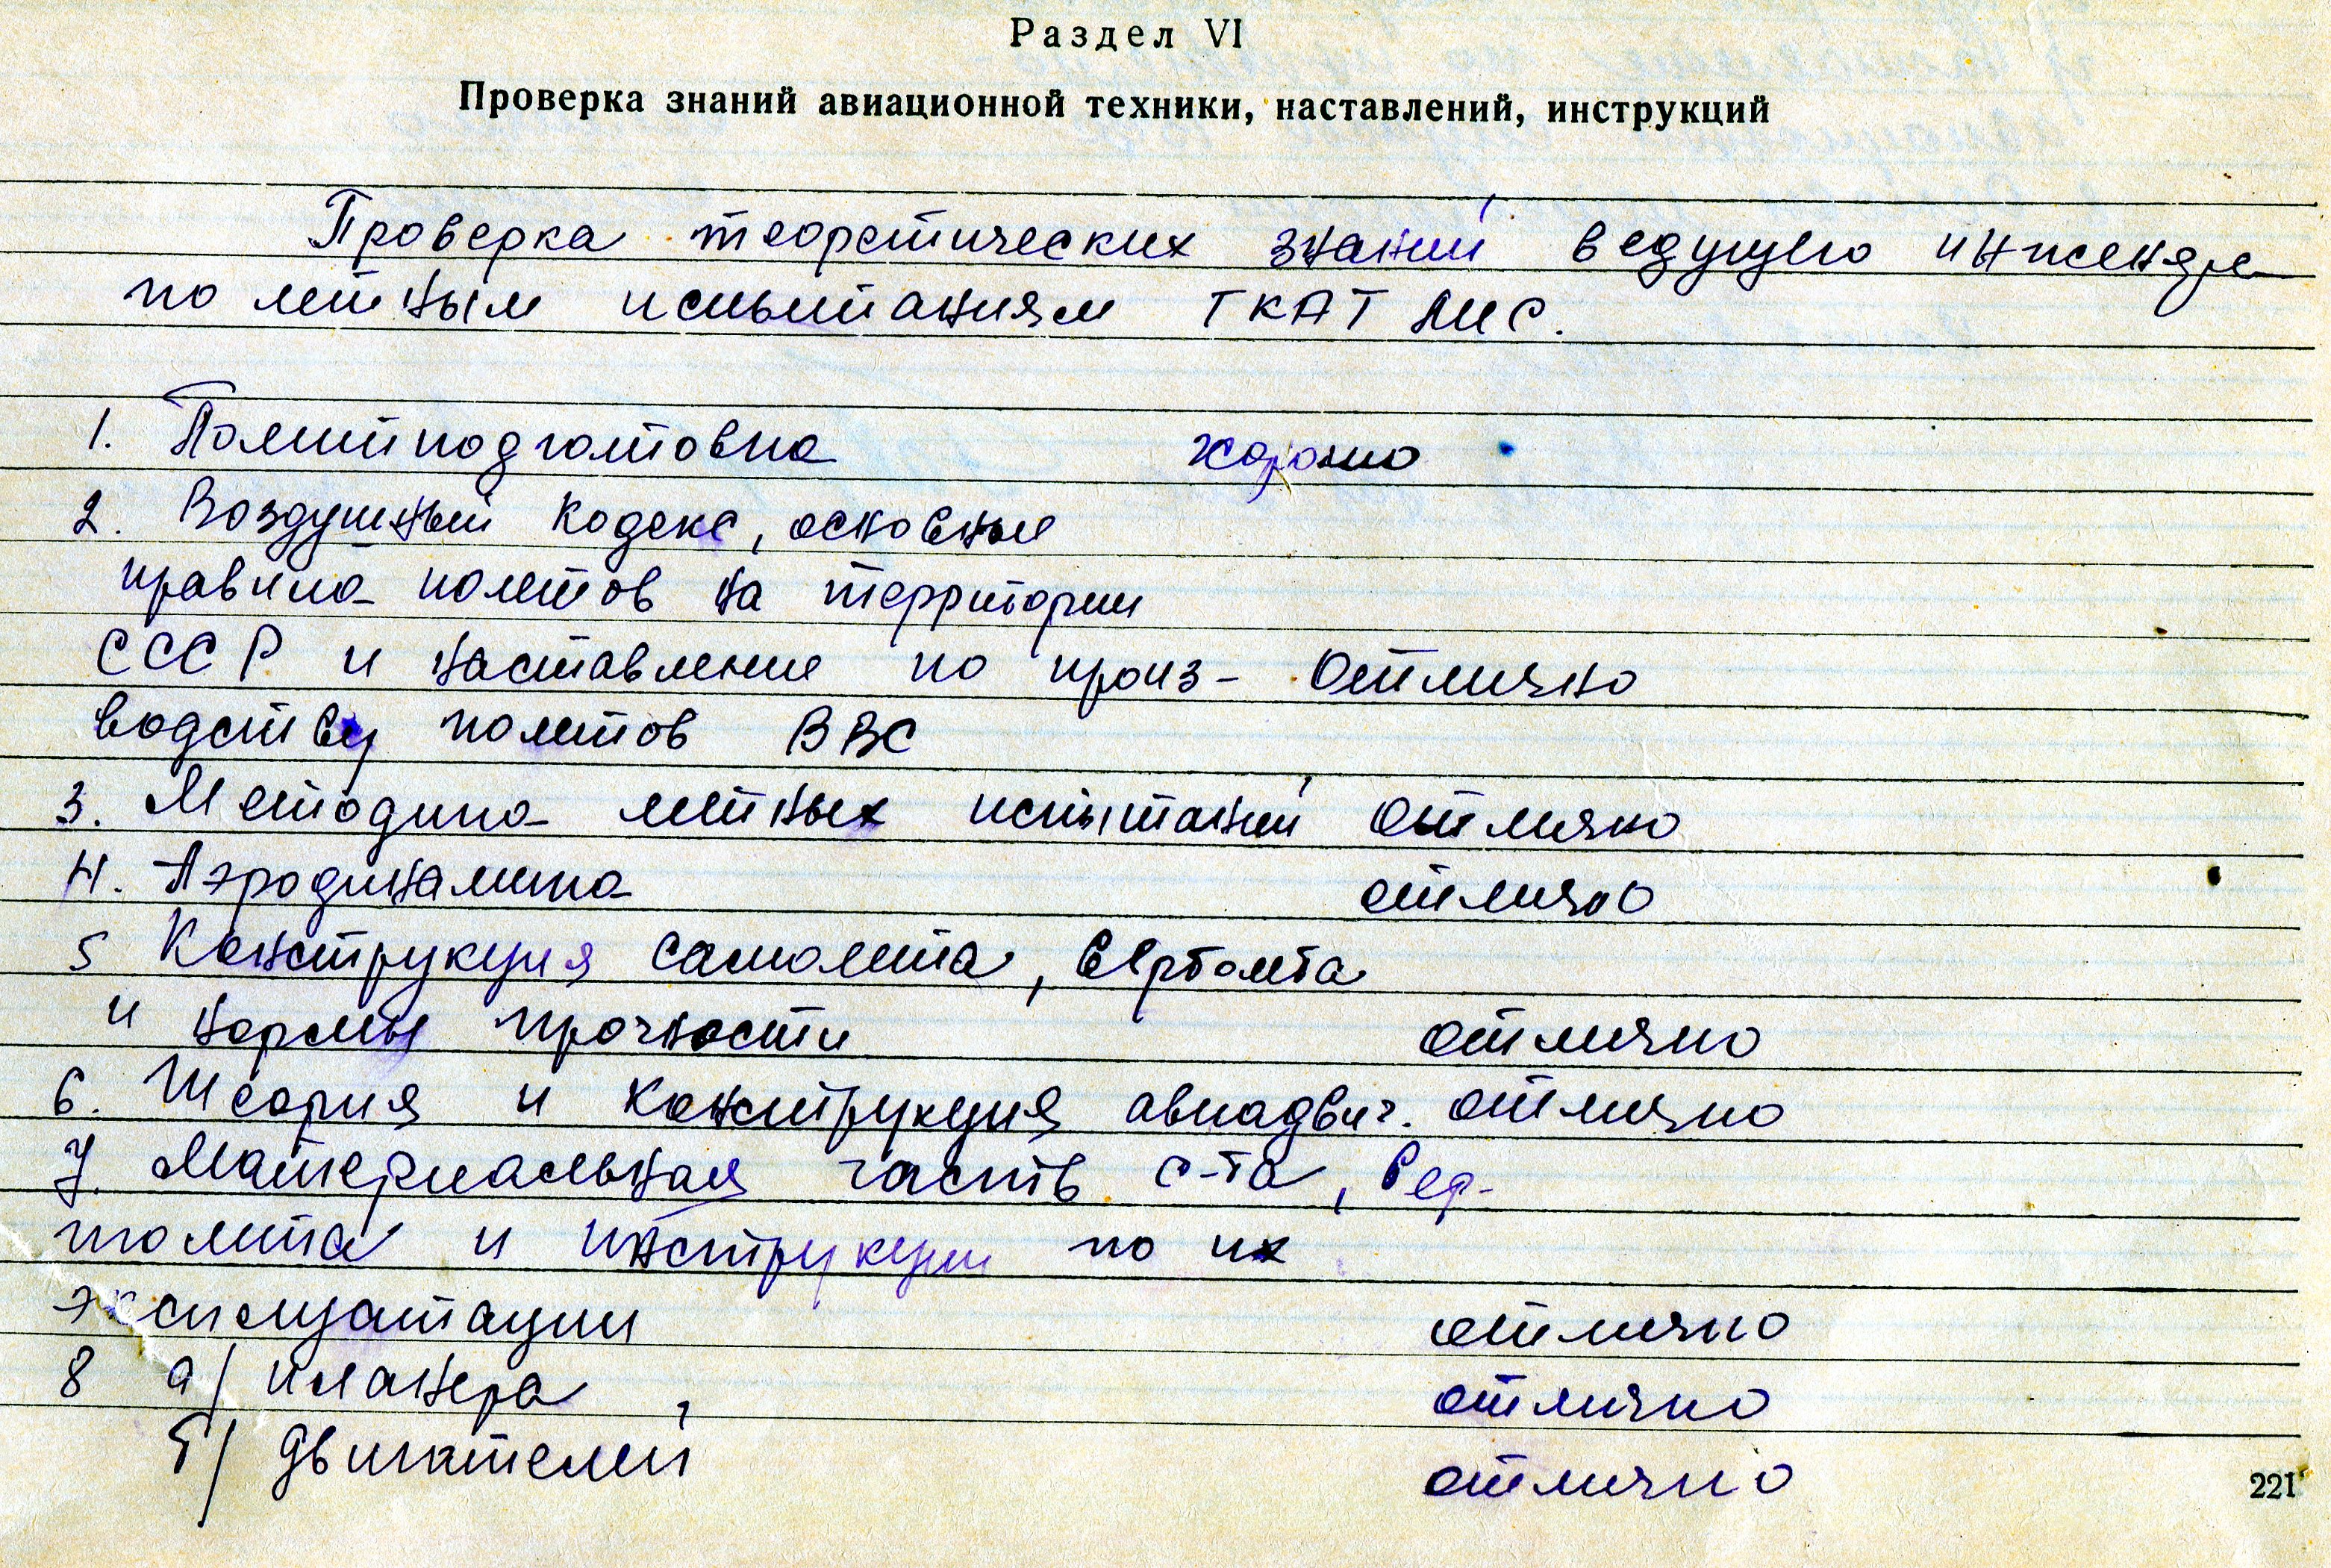 Раздел VI
Проверка знаний авиационной техники, наставлений, инструкций
Проверка теоретических знаний ведущего инженера
по летным испытаниям ТКАТ ЛИС.
1. Политподготовка хорошо
2. Воздушный кодекс, основные
правила полетов на территории
СССР и наставление по произ- Отлично
водству полетов ВВС
3. Методика летных испытаний Отлично
4. Аэродинамика отлично
5 Конструкция самолета, вертолета
и нормы прочности отлично
6. Теория и конструкция авиадвиг. отлично
7. Материальная часть с-та, вер-
толета и инструкции по их
эксплуатации отлично
8 а/ планера, отлично
б/ двигателей отлично
221